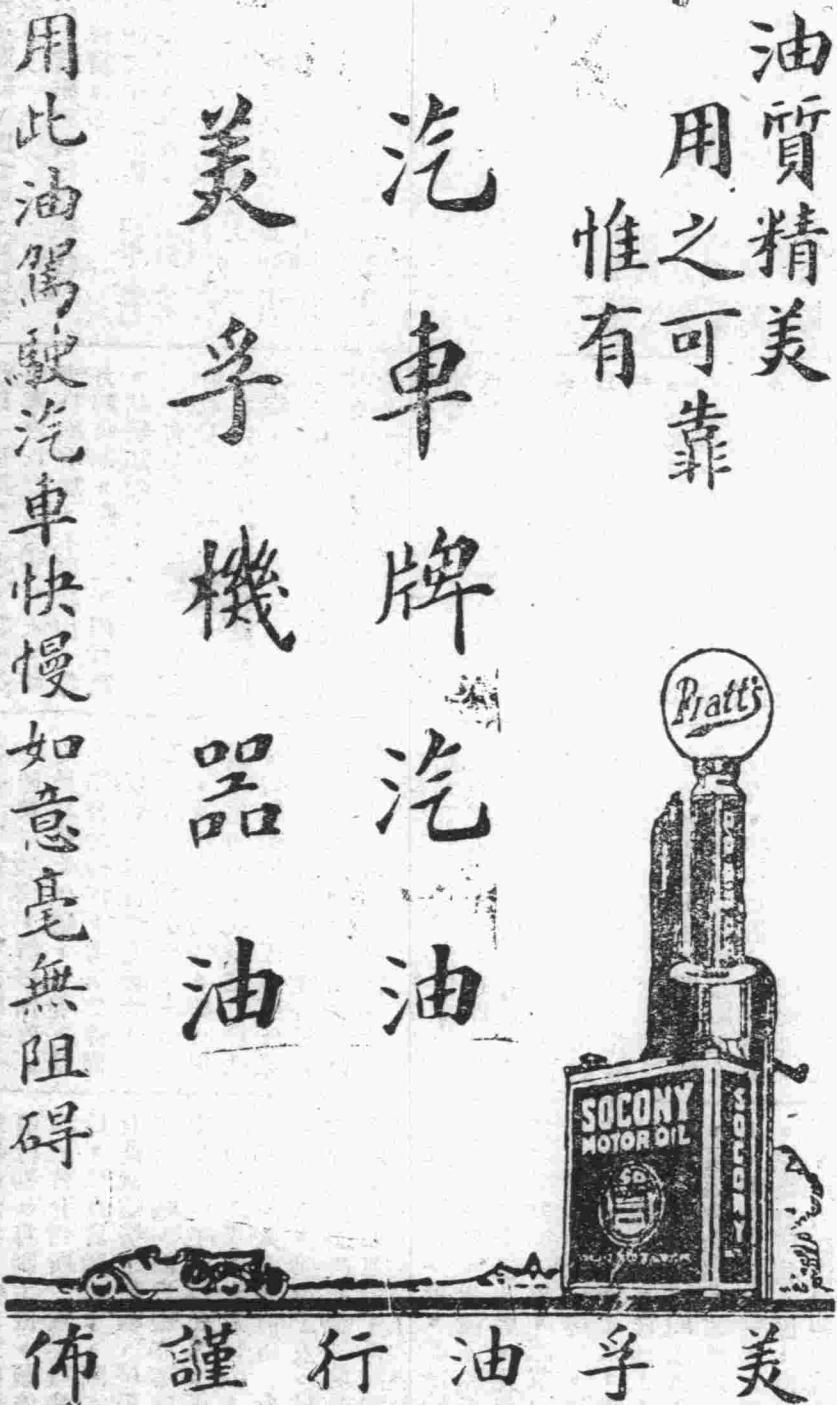 油質精美
用之可靠
惟有
汽車牌汽油
美孚機器油
用此油駕駛汽車快慢如意毫無阻碍
Pratt's
SOCONY
MOTOR OIL
SO
SOCONY
美孚油行謹佈